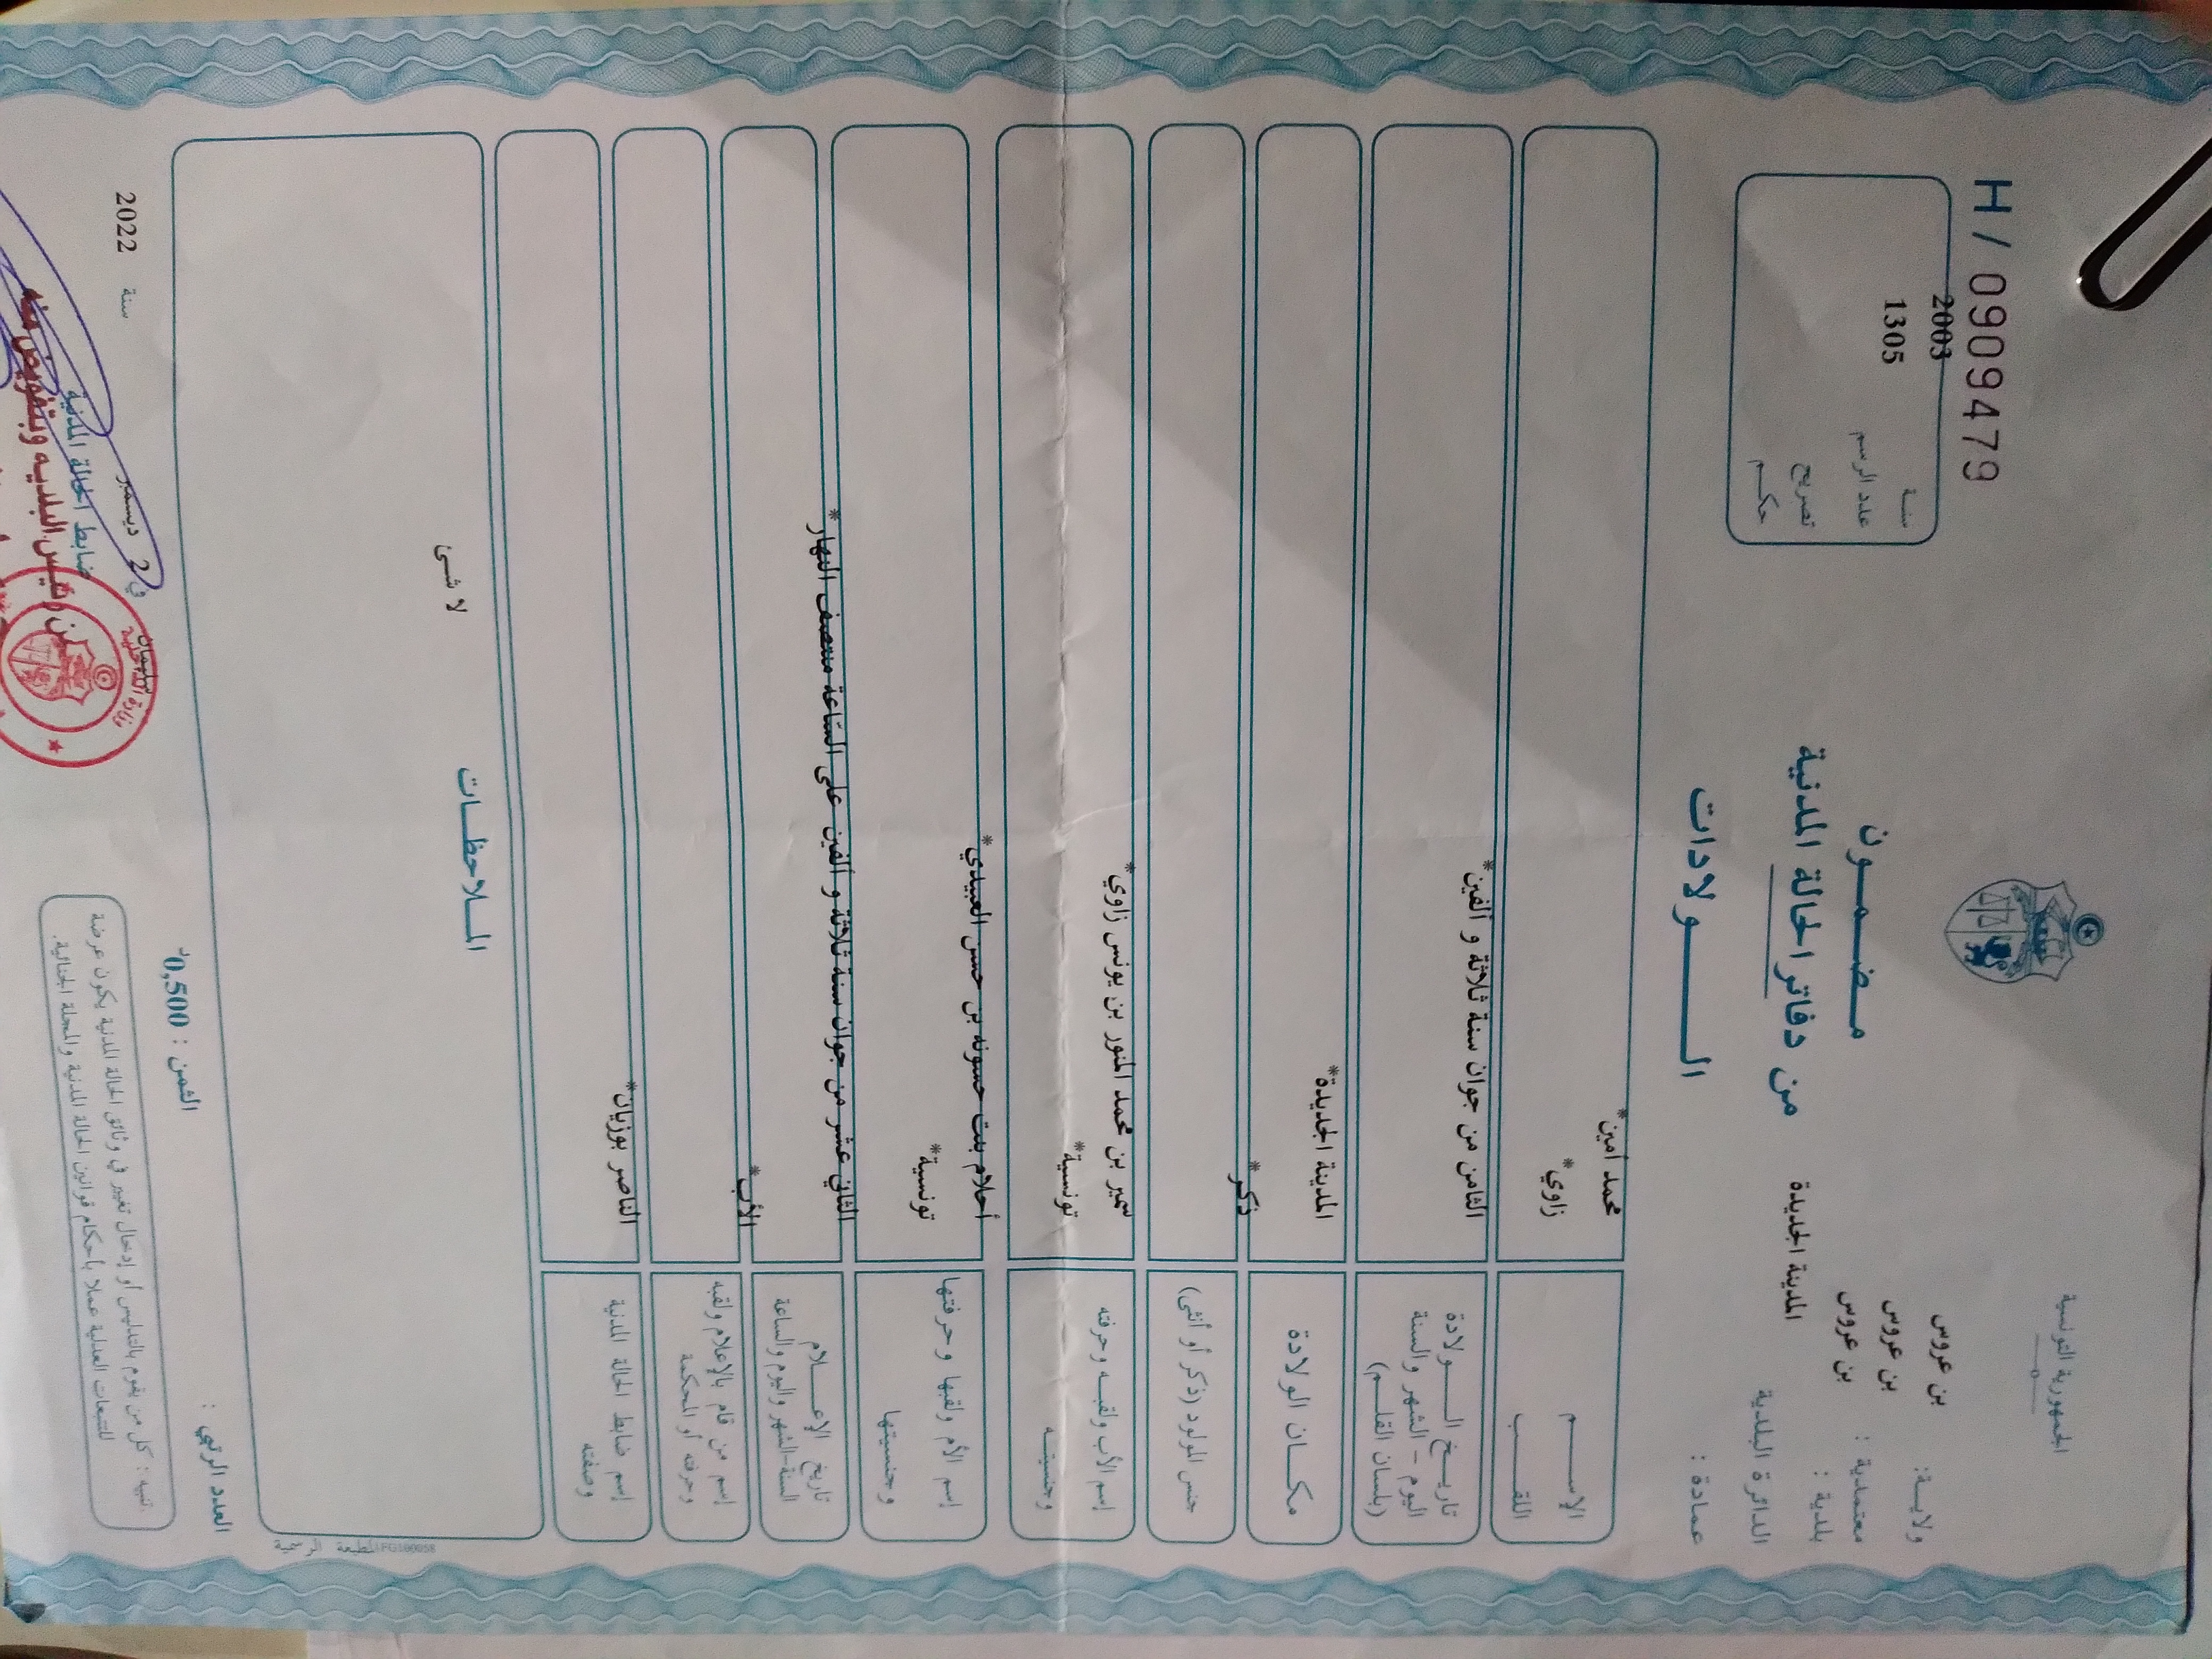 الجمهورية التونسية
H / 0909479
ولايـــة: بن عروس
معتمدية : بن عروس
بلدية : بن عروس
الدائرة البلدية المدينة الجديدة
عمادة :
سنـة 2003
عدد الرسم 1305
تصريح
حكـــم
مــضــمــون
من دفاتر الحالة المدنية
الــــولادات
الإســـم محمد أمين*
اللقـــب زاوي*
تاريــخ الــــولادة
اليوم - الشهر والسنة
(بلسان القلـــم)
الثامن من جوان سنة ثلاثة و ألفين*
مكــان الولادة المدينة الجديدة*
جنس المولود (ذكر أو أنثى) ذكر*
إسم الأب ولقبـه وحرفته سمير بن محمد المنور بن يونس زاوي*
وجنسيتــه تونسية*
إسم الأم ولقبها وحرفتها أحلام بنت حسونه بن حسن العبيدي*
وجنسيتها تونسية*
تاريخ الإعــــلام
السنة-الشهر واليوم والساعة
الثاني عشر من جوان سنة ثلاثة و ألفين على الساعة منتصف النهار*
إسم من قام بالإعلام ولقبه
وحرفته أو المحكمة
الأب*
إسم ضابط الحالة المدنية
وصفته
الناصر بوزيان*
المــلاحظــات
لا شـى
المطبعة الرسمية IFG180058
العدد الرتبي :
الثمن : 0,500د
سليمان في 2 ديسمبر سنة 2022
ضابط الحالة المدنية
عن رئيس البلدية وبتفويض منه
تنبيه : كل من يقوم بالتدليس أو إدخال تغيير في وثائق الحالة المدنية يكون عرضة
للتتبعات العدلية عملا بأحكام قوانين الحالة المدنية والمجلة الجنائية.